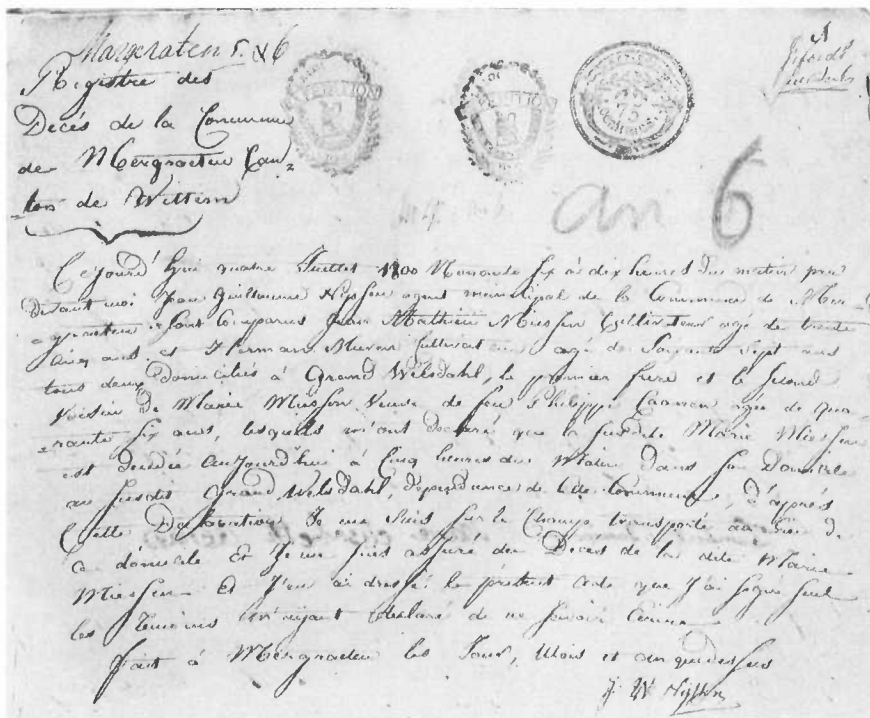 Margraten 5. & 6
Registre des
Decés de la Commune
de Mergraeten Can-
-ton de Wittem
an 6
Cejourd'hui quatre Juillet 1800 Nonante six à dix heures du matin par
devant moi Jean Guillaume Nijssen agent municipal de la Commune de Mer-
-graeten sont Comparus Jean Mathieu Miessen Cultivateur agé de trente
Cinq ans et Herman Cultivateur agé de Soixante Sept ans
tous deux domiciliés à Grand Welsdahl, le premier frere et le second
Voisin de Marie Miessen Veuve de feu Philippe agée de qua-
-rante six ans, lesquels m'ont declaré que la susdite Marie Miessen
est decedée Aujourd'hui à Cinq heures du Matin dans son Domicile
au susdit Grand Welsdahl, dépendance de Commune, d'après
Cette Declaration Je me suis sur le Champ transporté au lieu de
ce domicile et Je me suis assuré du Decès de la dite Marie
Miessen et J'en ai dressé le présent acte que J'ai signé seul
les Temoins m'aijant declaré de ne savoir Ecrire
fait à Mergraeten les Jour, Mois et an que dessus
J. W. Nijssen